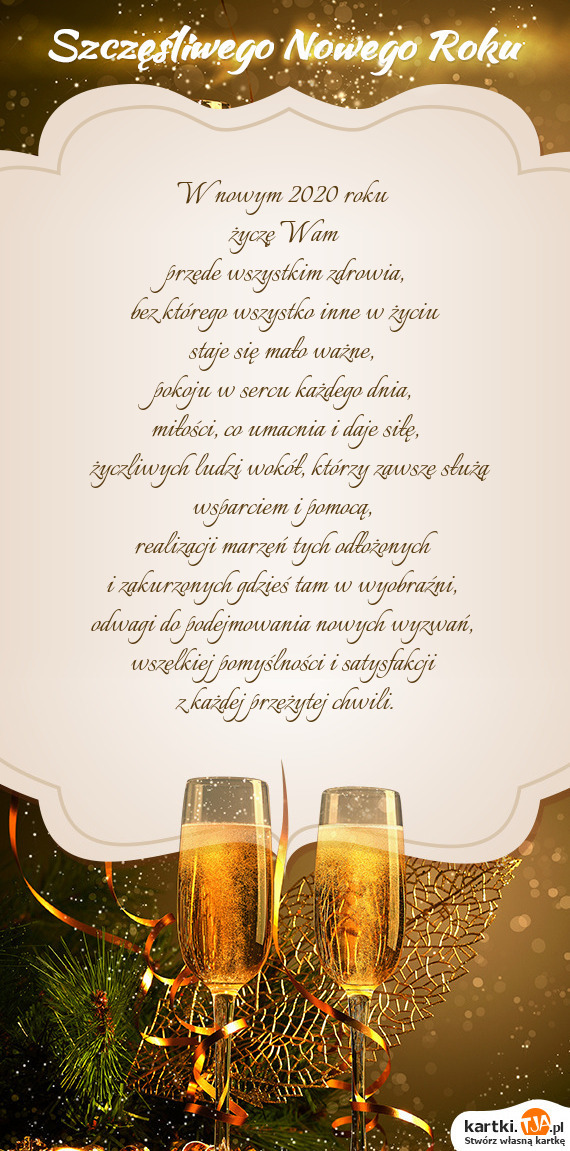 Szczęśliwego Nowego Roku
W nowym 2020 roku
życzę Wam
przede wszystkim zdrowia,
bez którego wszystko inne w życiu
staje się mało ważne,
pokoju w sercu każdego dnia,
miłości, co umacnia i daje siłę,
życzliwych ludzi wokół, którzy zawsze służą
wsparciem i pomocą,
realizacji marzeń tych odłożonych
i zakurzonych gdzieś tam w wyobraźni,
odwagi do podejmowania nowych wyzwań,
wszelkiej pomyślności i satysfakcji
z każdej przeżytej chwili.
kartki.TJA.pl
Stwórz własną kartkę